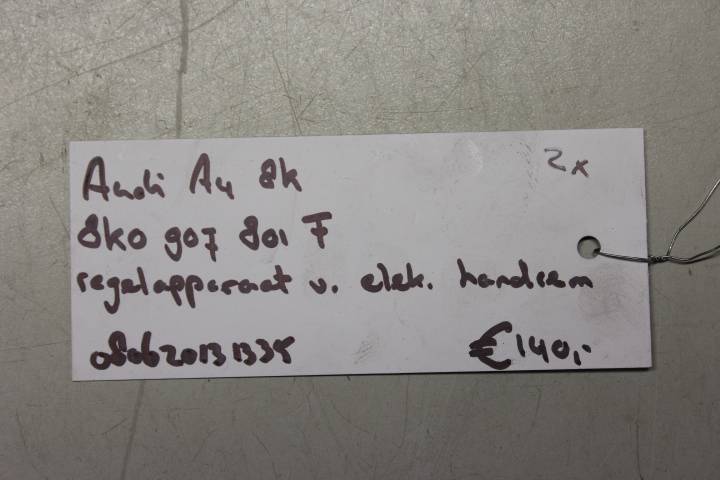 2x
Audi A4 8k
8K0 907 801 F
regelapparaat v. elek. handrem
080620131335
€140,-